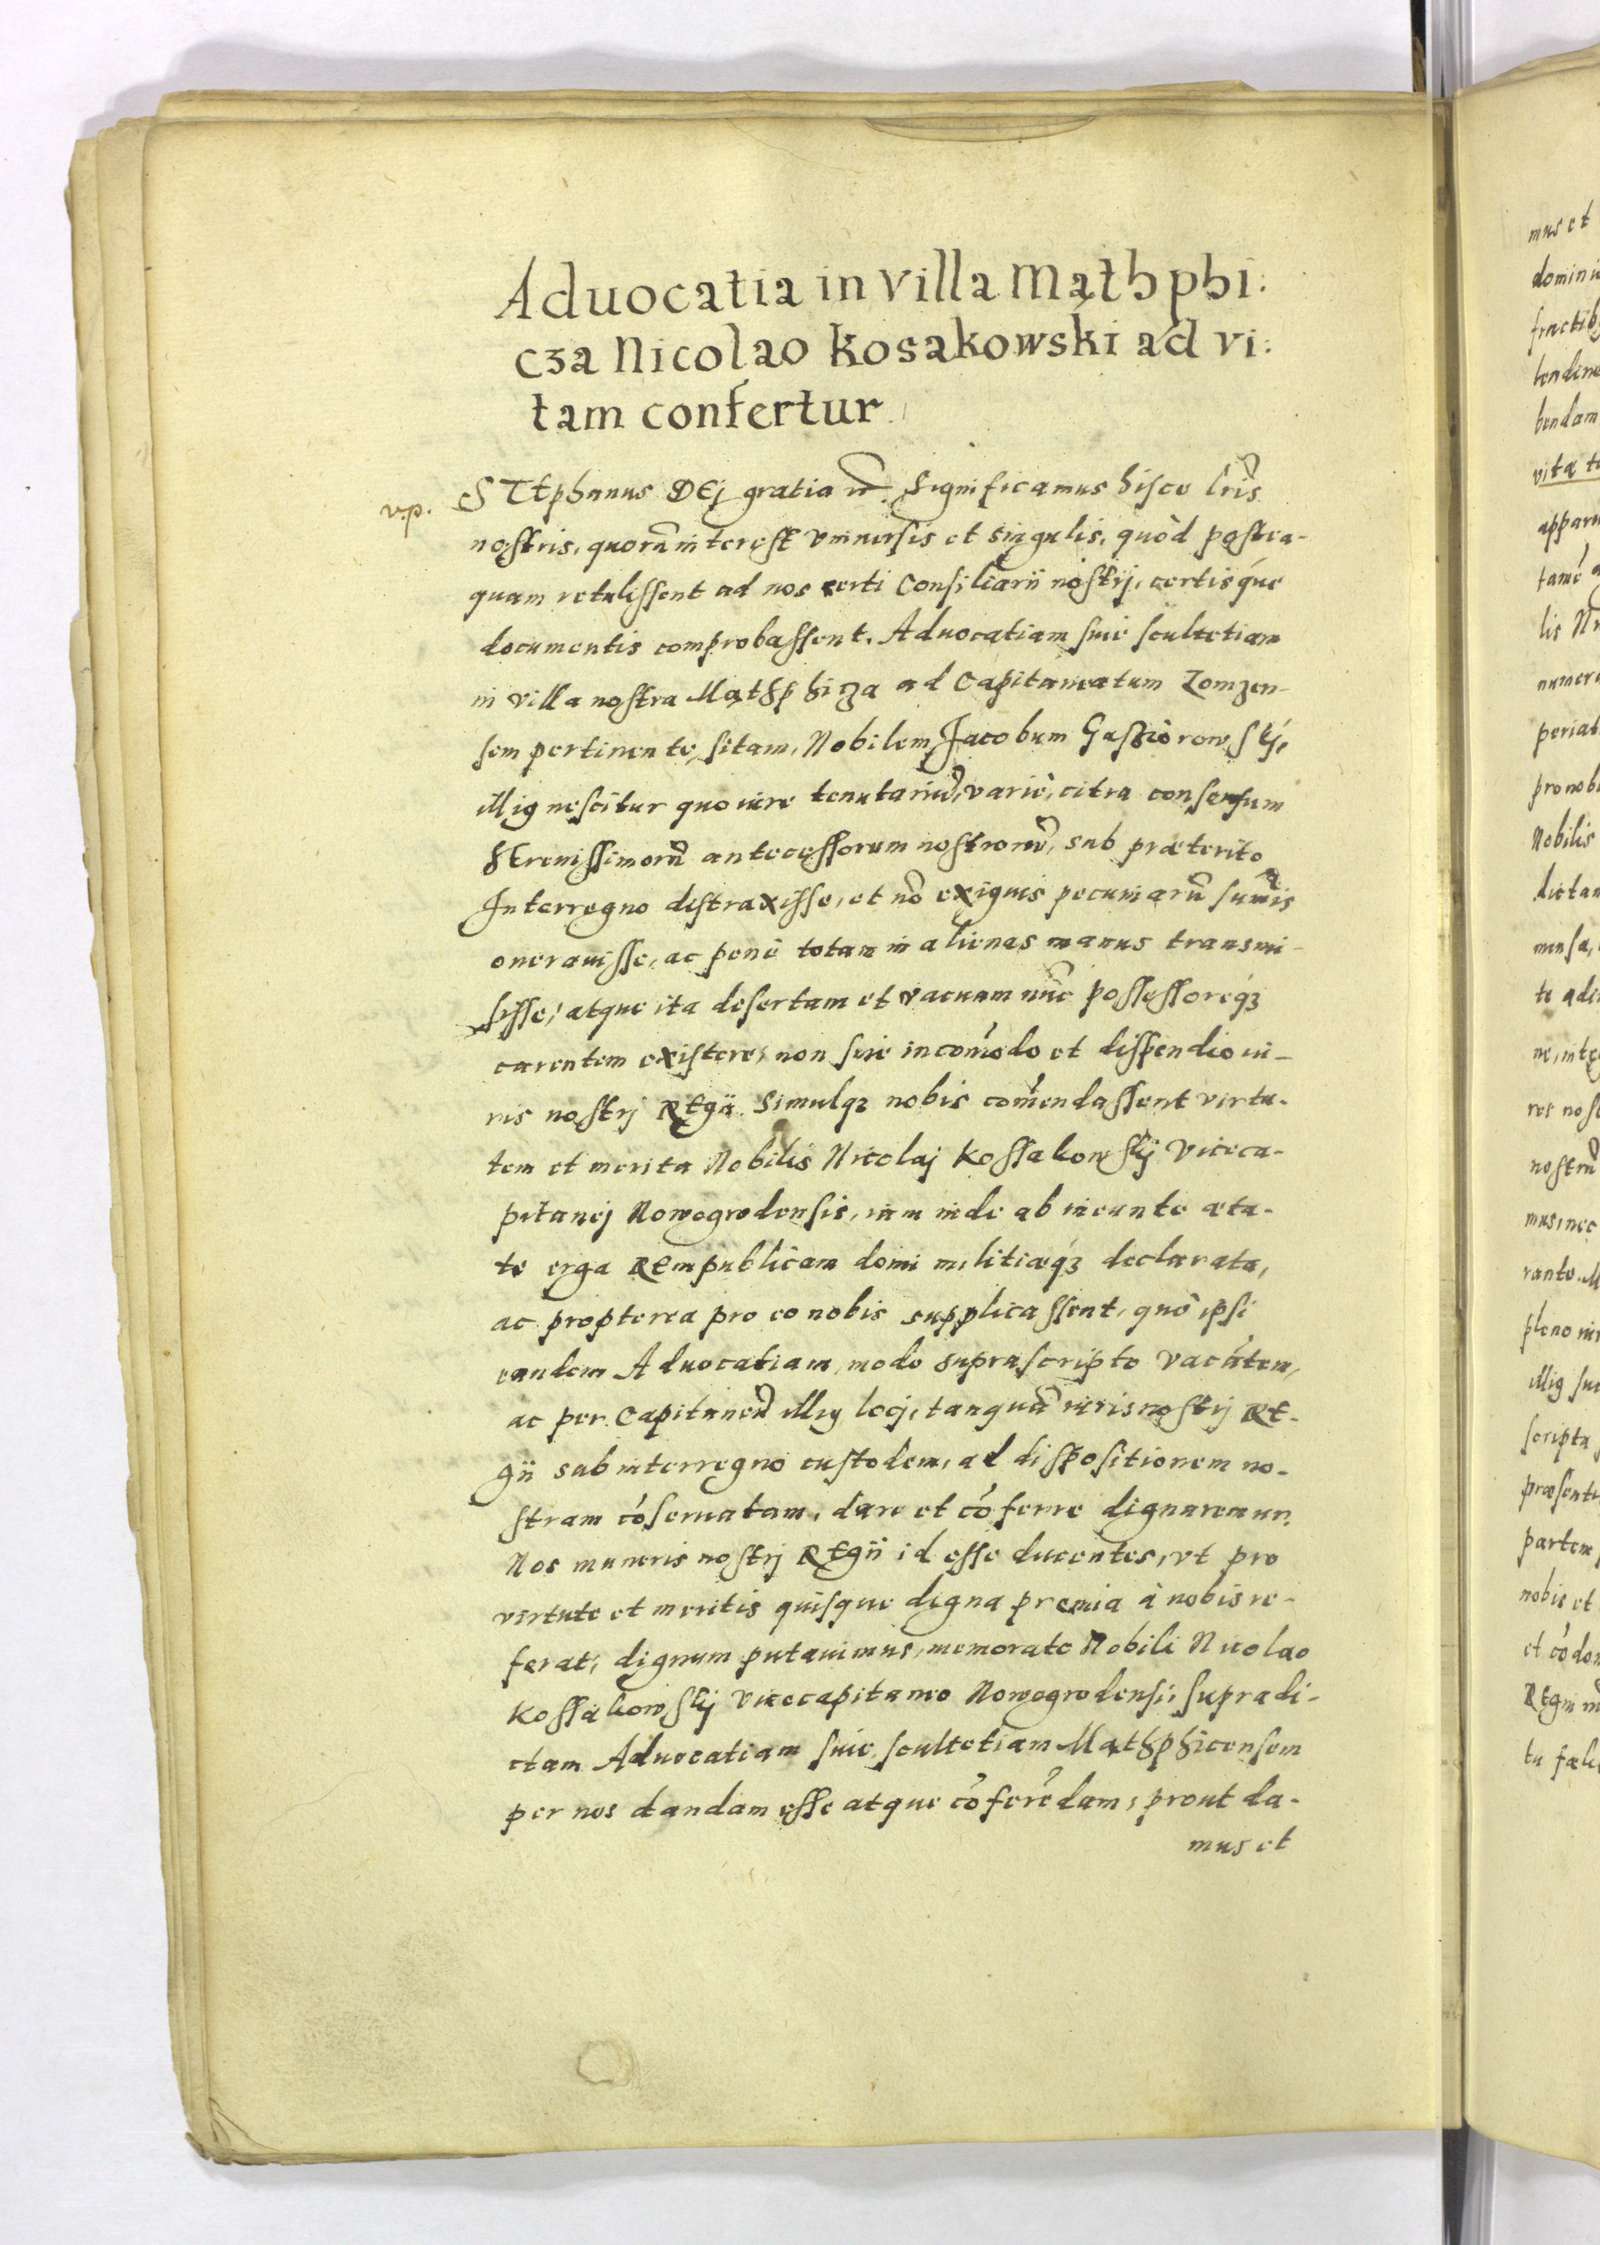 Aduocatia in villa Mąthphi:
cza Nicolao Kosakowski ad vi:
tam confertur
v.p.
STEphanus DEj gratia etc. Significamus hisce lrīs
nostris, quorū interest vniuersis et singulis, quòd postea-
quam retulissent ad nos certi Consiliarii nostrj, certisq́ue
documentis comprobassent. Aduocatiam siue scultetiam
in villa nostra Mąthphicza ad Capitaneatum Lomzen-
sem pertinente, sitam, Nobilem Jacobum Gąssiorowskj,
illig nescitur quo iure tenutariū, variè, citra consensum
SErenissimorū antecessorum nostrorū, sub præterito
Interregno distraxisse, et nō exiguis pecuniarū sumīs
onerauisse, ac penè totam in alienas manus transmi-
sisse, atque ita desertam et vacuam nūc possessoreq́ꝫ
carentem existere, non siue incōmodo et dispendio iu-
ris nostrj REgii. Simulqꝫ nobis cōmendassent virtu-
tem et merita Nobilis Nicolaj Kossakowskij Viceca-
pitanej Nowogrodensis, iam inde ab ineunte æta-
te erga REmpublicam domi militiæq́ꝫ declarata,
ac propterea pro eo nobis supplicassent, quò ipsi
eandem Aduocatiam, modo suprascripto vacātem,
ac per Capitaneū illig locj, tanquā iuris nostrj RE-
gii sub interregno custodem, ad dispositionem no-
stram cōseruatam, dare et cōferre dignaremur.
Nos muneris nostrj REgii id esse ducentes, vt pro
virtute et meritis quisque digna premia à nobis re-
ferat, dignum putauimus, memorato Nobili Nicolao
Kossakowskij Vicecapitaneo Nowogrodensi, supradi-
ctam Aduocatiam siue scultetiam Mąthphicensem
per nos dandam esse atque cōferēdam, prout da-
mus et
mus et
lis
Nobilis
scripta
nobis et